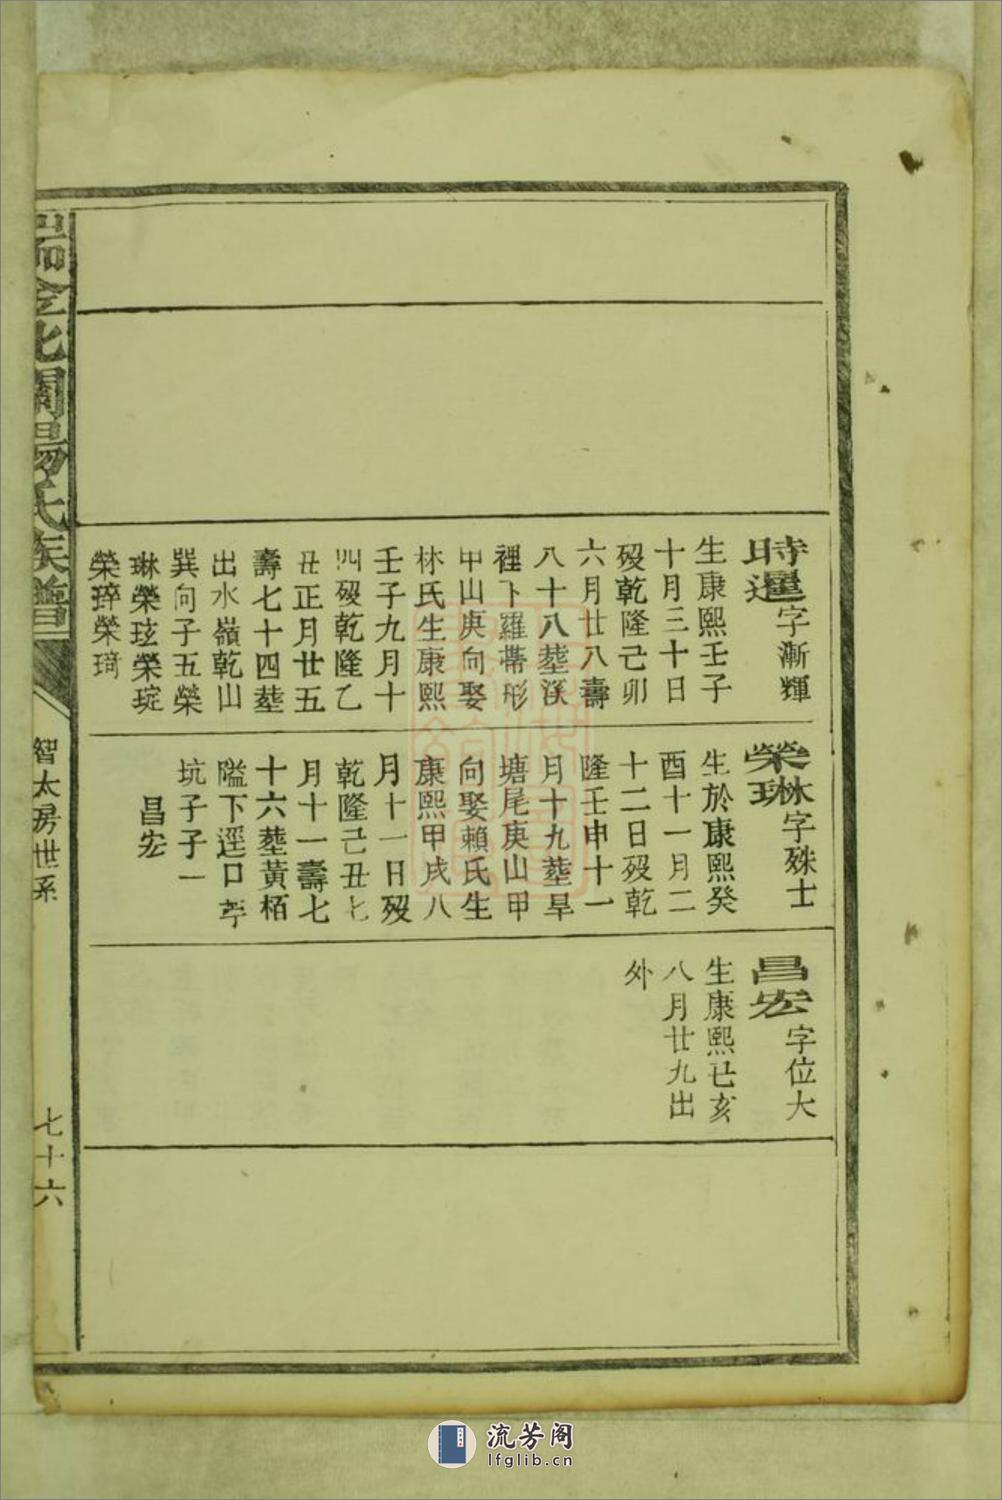 時暹字漸輝
生康熙壬子
十月三十日
歿乾隆己卯
六月廿八壽
八十八塟溪
裡下羅帶形
甲山庚向娶
林氏生康熙
壬子九月十
四歿乾隆乙
丑正月廿五
壽七十四塟
出水嶺乾山
巽向子五榮
琳榮玹榮琔
榮琗榮琦
榮琳字殊士
生於康熙癸
酉十一月二
十二日歿乾
隆壬申十一
月十九塟旱
塘尾庚山甲
向娶賴氏生
康熙甲戌八
月十一日歿
乾隆己丑七
月十一壽七
十六塟黃栢
隘下逕口葶
坑子子一
昌宏
昌宏字位大
生康熙已亥
八月廿九出
外
瑞金北關楊氏族譜
智太房世系
七十六
流芳阁
lfglib.cn